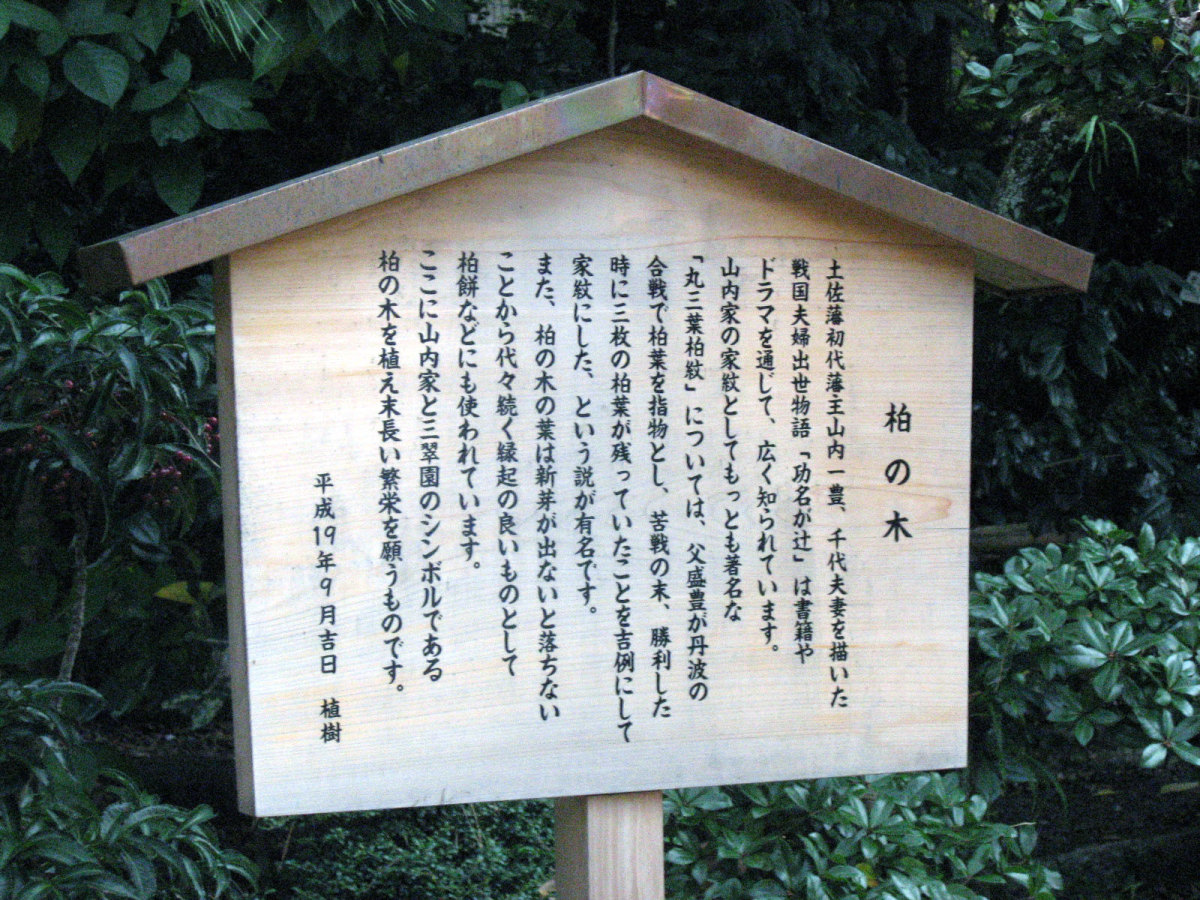 柏の木
土佐藩初代藩主山内一豊、千代夫妻を描いた
戦国夫婦出世物語「功名が辻」は書籍や
ドラマを通じて、広く知られています。
山内家の家紋としてもっとも著名な
「丸三葉柏紋」については、父盛豊が丹波の
合戦で柏葉を指物とし、苦戦の末、勝利した
時に三枚の柏葉が残っていたことを吉例にして
家紋にした、という説が有名です。
また、柏の木の葉は新芽が出ないと落ちない
ことから代々続く縁起の良いものとして
柏餅などにも使われています。
ここに山内家と三翠園のシンボルである
柏の木を植え末長い繁栄を願うものです。
平成19年9月吉日 植樹